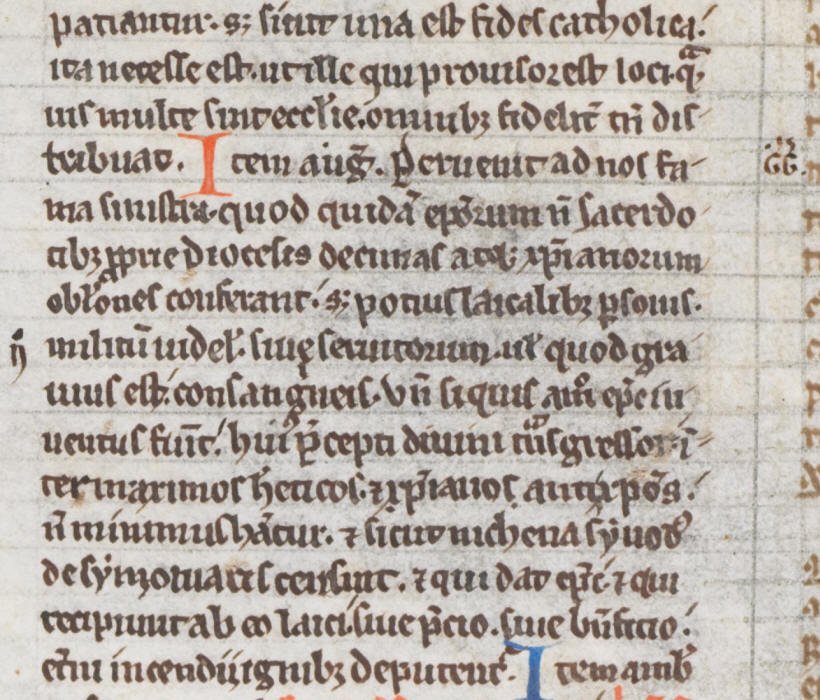 patiantur. s; sicut una est fides catholica.
ita necesse est. ut ille qui prouisor est loci. qᵃ
uis multe sint eccl'ie. omnibꝫ fidelit̄ tn̄ dis
tribuat. Item aug̃. ꝑuenit ad nos fa
ma sinistra. quod quidā ep̄orum n̄ sacerdo
tibꝫ ꝓprie diocesis decimas atqꝫ xp̄ianorum
obl'ones conferant. s; potius laicalibꝫ ꝑsonis.
militū uidel'. siue seruitorum. ul' quod gra
uius est. consanguineis. Vn̄ si quis am̊ ep̄c in
uentus fu̾it. hui᷒ p̄cepti diuini t̃nsgressor. ī
ter maximos h̾eticos. ⁊ xp̄ianos
n̄ minimus hab̾atur. ⁊ sicut nichena synod᷒
de symoniacis censuit. ⁊ qui dat ep̄c. ⁊ qui
recipiunt ab eo laici siue p̄cio. siue bn̄ficio.
et̾ni incendii ignibꝫ deputent᷑. Item amb̄
GG